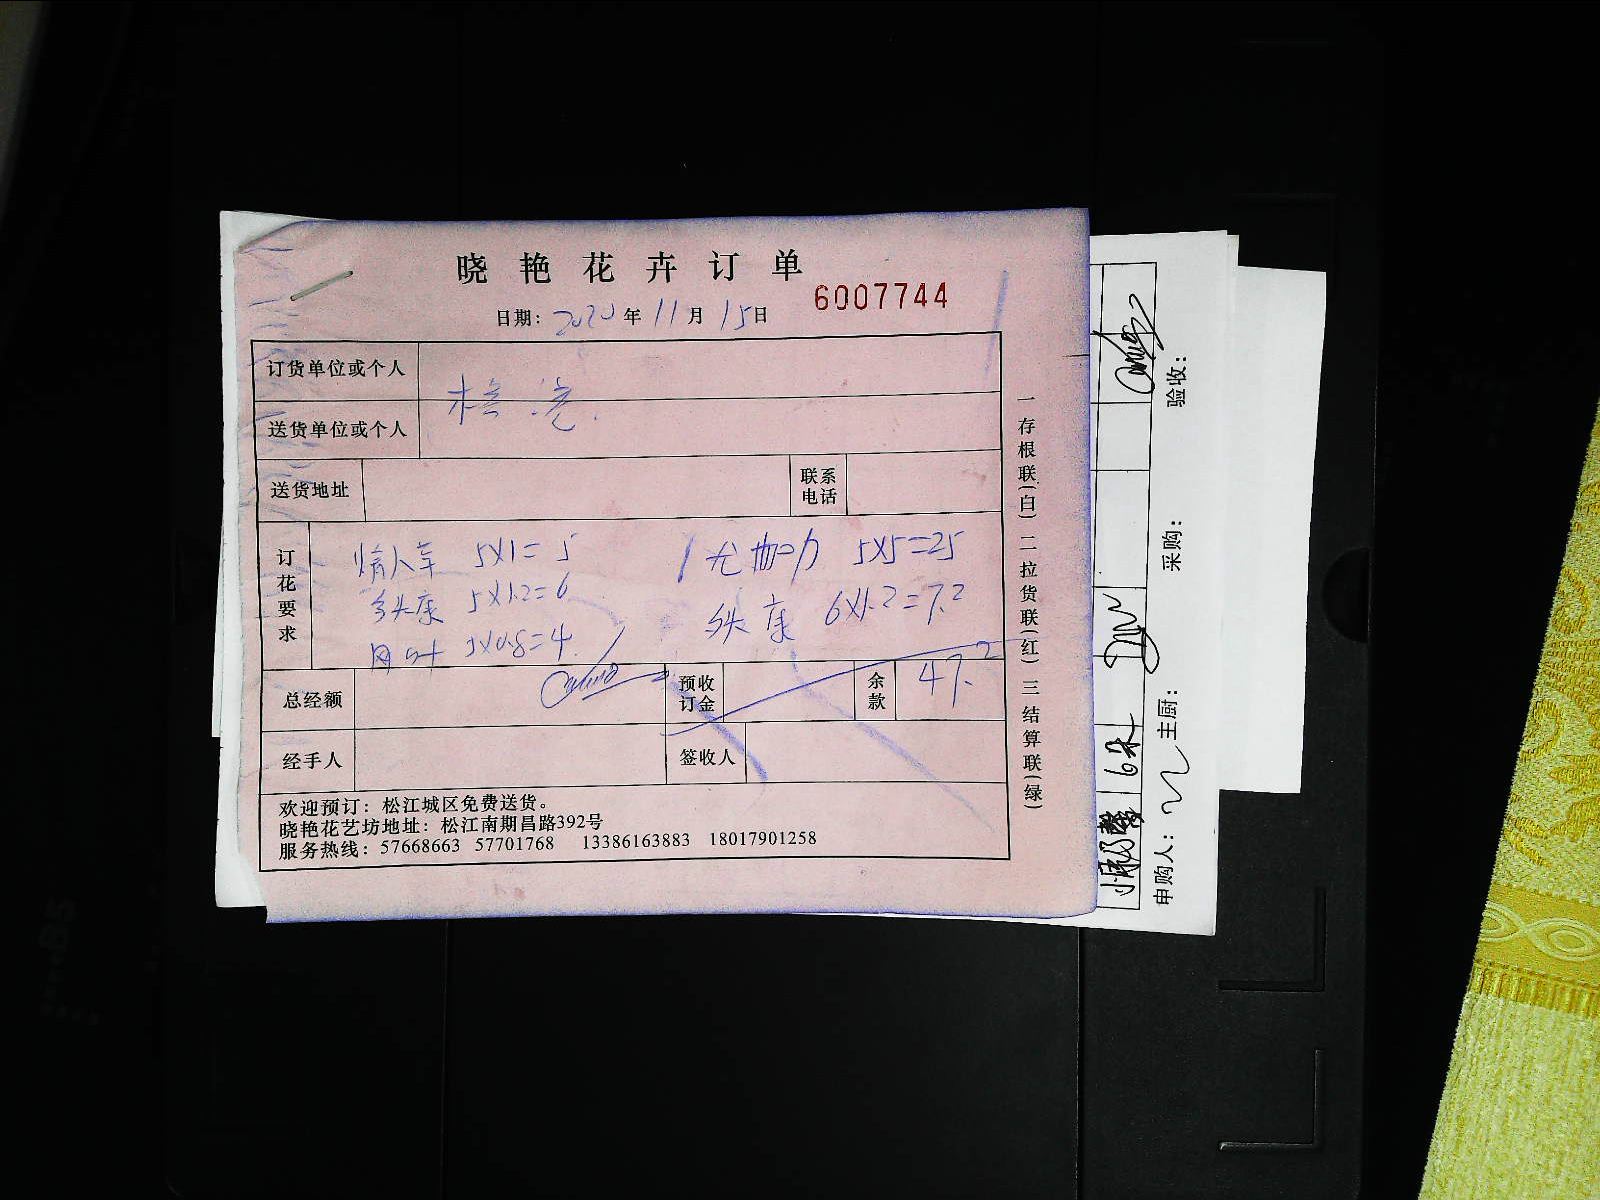 晓艳花卉订单
6007744
日期: 2020年11月15日
订货单位或个人
送货单位或个人
送货地址
联系电话
订花要求
情人草 5X1=5
尤加力 5X5=25
多头康 5X1.2=6
多头康 6X1.2=7.2
5X0.8=4
总经额
预收订金
余款
47.2
经手人
签收人
欢迎预订：松江城区免费送货。
晓艳花艺坊地址：松江南期昌路392号
服务热线：57668663 57701768 13386163883 18017901258
一存根联(白) 二拉货联(红) 三结算联(绿)
6朵
申购人：
主厨：
采购：
验收：